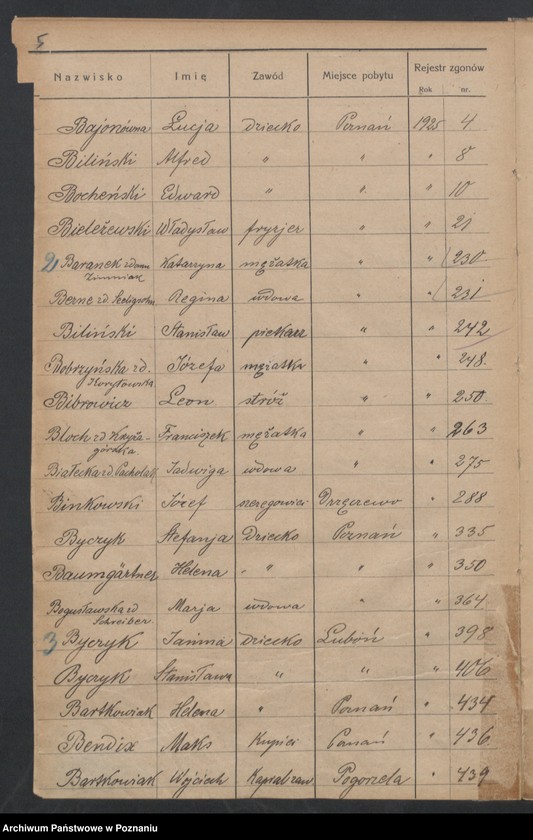 5
Nazwisko Imię Zawód Miejsce pobytu Rejestr zgonów
Rok nr.
Bajonówna Łucja dziecko Poznań 1925 4
Biliński Alfred " " " 8
Bocheński Edward " " " 10
Bieleżewski Władysław fryzjer " " 21
2 Baranek z domu Katarzyna mężatka " " 230
Zimniak
Berne zd. Regina wdowa " " 231
Biliński Stanisław piekarz " " 242
Bobrzyńska zd. Józefa mężatka " " 248.
Bibrowicz Leon stróż " " 250
Bloch zd. Franciszek mężatka " " 263
górska
Białecka zd. Jadwiga wdowa " " 275
Binkowski Józef szeregowiec " 288
Byczyk Stefanja Dziecko Poznań " 335
Baumgärtner Helena " " " " 350
Bogusławska zd Marja wdowa " " 364
Schreiber.
3 Byczyk Janina dziecko Luboń " 398
Byczyk Stanisława " " " 406
Bartkowiak Helena " Poznań " 434
Bendix Maks Kupiec " 436
Bartkowiak Wojciech Pogorzela " 439
Archiwum Państwowe w Poznaniu